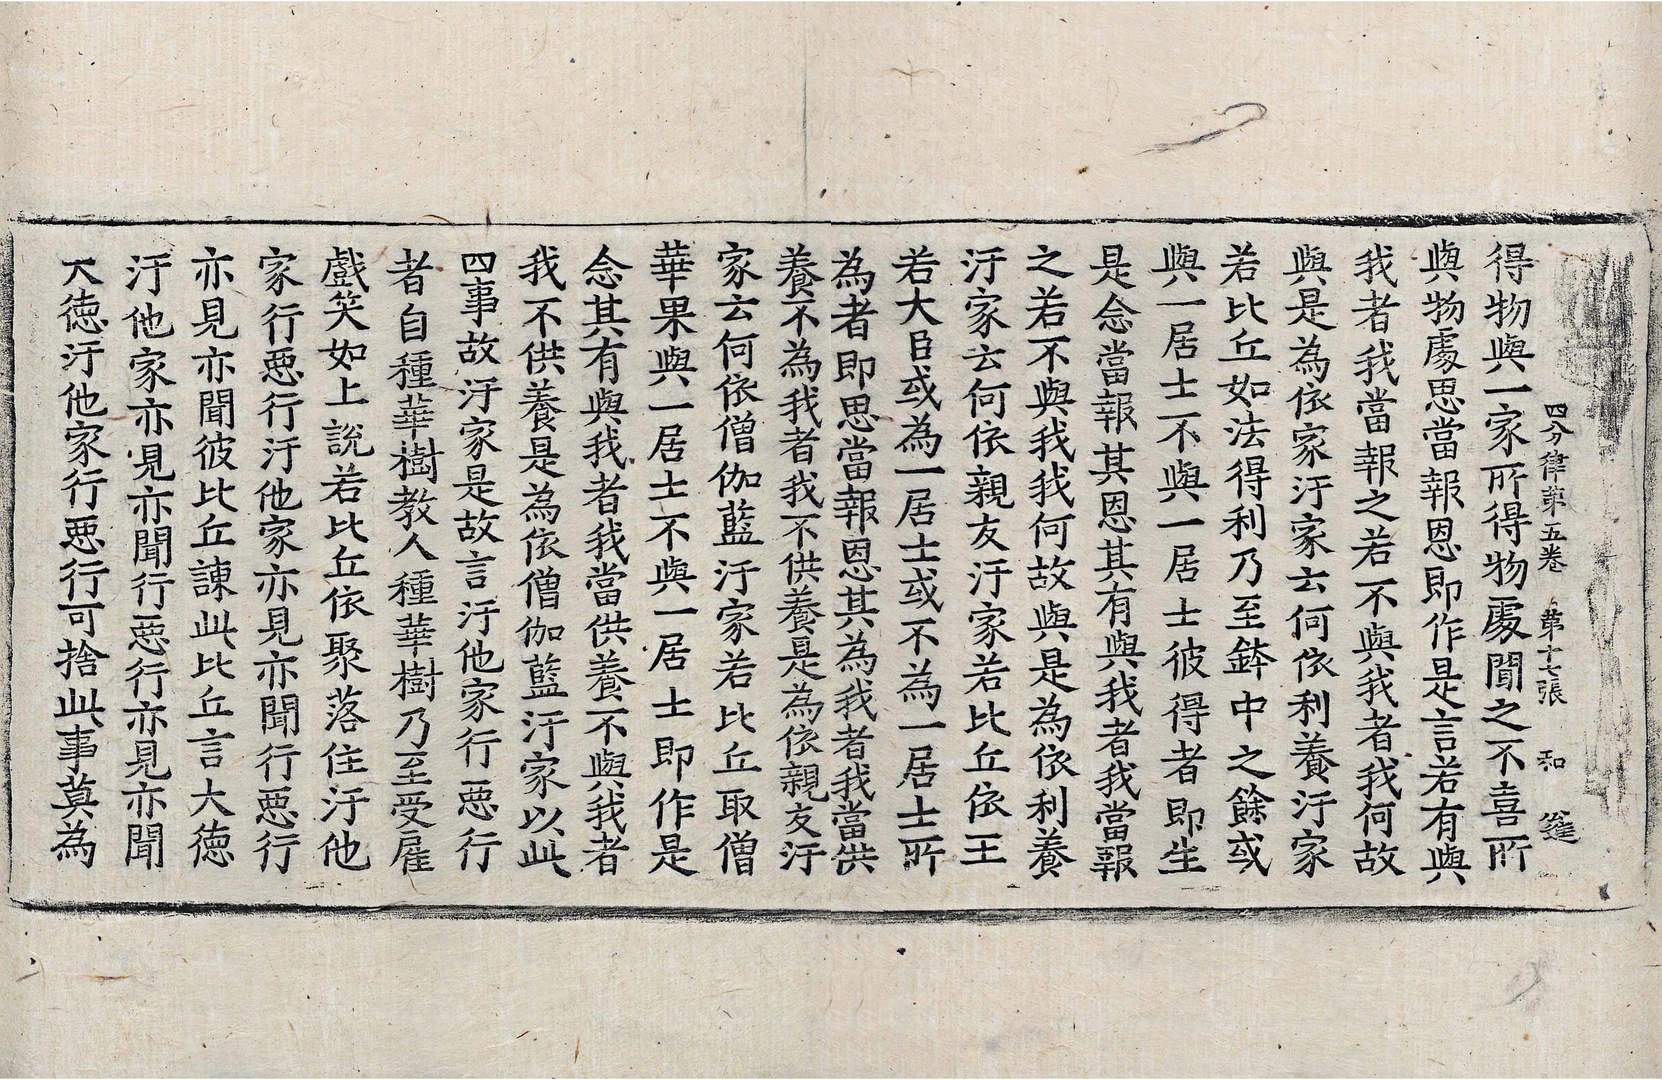 四分律第五卷　第十七張　和
得物與一家所得物處聞之不喜所
與物處思當報恩即作是言若有與
我者我當報之若不與我者我何故
與是為依家汙家云何依利養汙家
若比丘如法得利乃至鉢中之餘或
與一居士不與一居士彼得者即生
是念當報其恩其有與我者我當報
之若不與我我何故與是為依利養
汙家云何依親友汙家若比丘依王
若大臣或為一居士或不為一居士所
為者即思當報恩其為我者我當供
養不為我者我不供養是為依親友汙
家云何依僧伽藍汙家若比丘取僧
華果與一居士不與一居士即作是
念其有與我者我當供養不與我者
我不供養是為依僧伽藍汙家以此
四事故汙家是故言汙他家行惡行
者自種華樹教人種華樹乃至受雇
戲笑如上說若比丘依聚落住汙他
家行惡行汙他家亦見亦聞行惡行
亦見亦聞彼比丘諫此比丘言大德
汙他家亦見亦聞行惡行亦見亦聞
大德汙他家行惡行可捨此事莫為